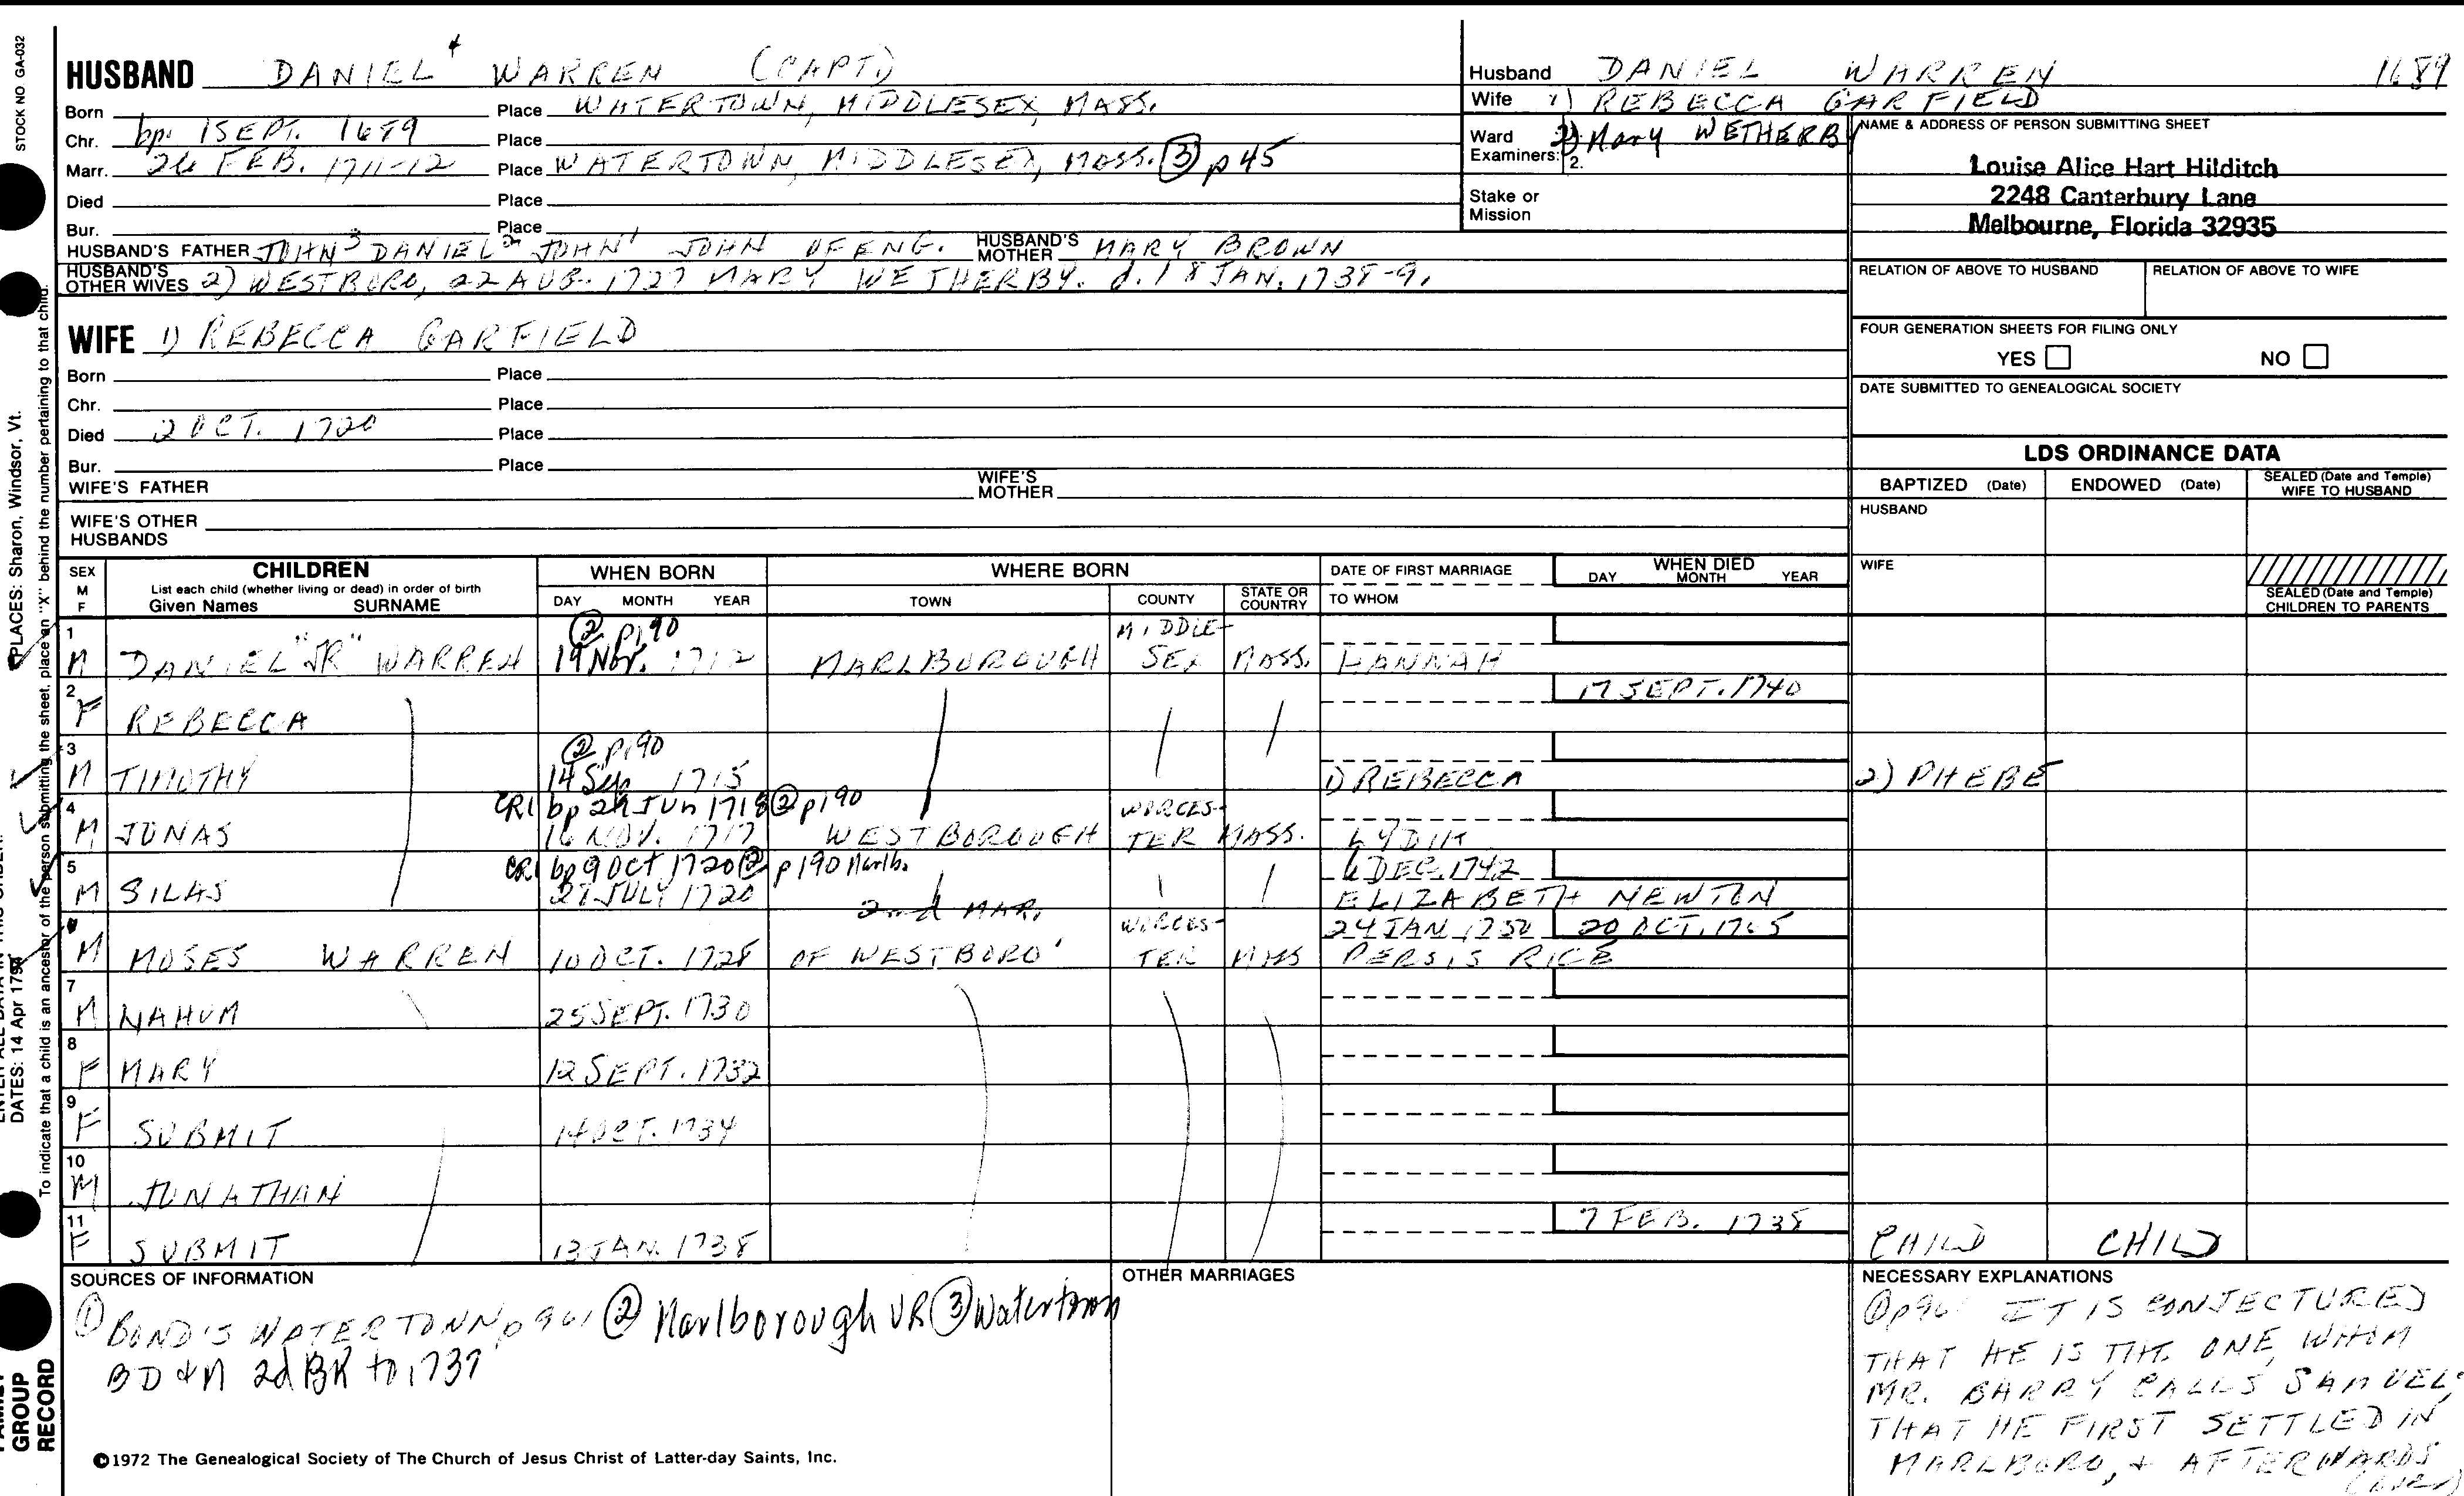 STOCK NO GA-032
HUSBAND DANIEL 4 WARREN (CAPT.)
Born Place WATERTOWN, MIDDLESEX, MASS.
Chr. bp. 1 SEPT. 1689 Place
Marr. 26 FEB. 1711-12 Place WATERTOWN, MIDDLESEX, MASS. (3) p 45
Died Place
Bur. Place
HUSBAND'S FATHER JOHN 3 DANIEL 2 JOHN 1 JOHN OF ENG. HUSBAND'S MOTHER MARY BROWN
HUSBAND'S OTHER WIVES 2) WESTBORO, 22 AUG. 1727 MARY WETHERBY. d. 18 JAN. 1738-9.
Husband DANIEL WARREN 1689
Wife 1) REBECCA GARFIELD
Ward 2) Mary WETHERBY
Examiners: 2.
Stake or
Mission
NAME & ADDRESS OF PERSON SUBMITTING SHEET
Louise Alice Hart Hilditch
2248 Canterbury Lane
Melbourne, Florida 32935
RELATION OF ABOVE TO HUSBAND RELATION OF ABOVE TO WIFE
FOUR GENERATION SHEETS FOR FILING ONLY
YES NO
DATE SUBMITTED TO GENEALOGICAL SOCIETY
WIFE 1) REBECCA GARFIELD
Born Place
Chr. Place
Died 2 OCT. 1720 Place
Bur. Place
WIFE'S FATHER WIFE'S MOTHER
WIFE'S OTHER
HUSBANDS
LDS ORDINANCE DATA
BAPTIZED (Date) ENDOWED (Date) SEALED (Date and Temple) WIFE TO HUSBAND
HUSBAND
WIFE
SEALED (Date and Temple)
CHILDREN TO PARENTS
SEX M F CHILDREN WHEN BORN WHERE BORN DATE OF FIRST MARRIAGE WHEN DIED
List each child (whether living or dead) in order of birth
Given Names SURNAME DAY MONTH YEAR TOWN COUNTY STATE OR COUNTRY TO WHOM DAY MONTH YEAR
1 (2) p190 MIDDLE-
M DANIEL "JR" WARREN 19 Nov. 1712 MARLBOROUGH SEX MASS. HANNAH
2 17 SEPT. 1740
F REBECCA
3 (2) p190
M TIMOTHY 14 Sep 1715 1) REBECCA 2) PHEBE
4 CR1 bp 29 Jun 1718 (2) p190 WORCES-
M JONAS 16 NOV. 1717 WESTBOROUGH TER MASS. LYDIA
5 CR1 bp 9 Oct 1720 (2) p190 Marlb. 6 DEC. 1742
M SILAS 27 JULY 1720 ELIZABETH NEWTON
2nd MAR. WORCES- 24 JAN 1750 20 OCT. 1765
M MOSES WARREN 10 OCT. 1728 OF WESTBORO' TER MASS PERSIS RICE
7
M NAHUM 25 SEPT. 1730
8
F MARY 12 SEPT. 1732
9
F SUBMIT 14 OCT. 1734
10
M JONATHAN
11 7 FEB. 1738
F SUBMIT 13 JAN. 1738 CHILD CHILD
SOURCES OF INFORMATION
(1) BOND'S WATERTOWN p 961 (2) Marlborough VR (3) Watertown
BD & M 2d BK to 1737
OTHER MARRIAGES
NECESSARY EXPLANATIONS
(1) p 961 IT IS CONJECTURED
THAT HE IS THE ONE, WHOM
MR. BARRY CALLS SAMUEL,
THAT HE FIRST SETTLED IN
MARLBORO, & AFTERWARDS
(OVER)
©1972 The Genealogical Society of The Church of Jesus Christ of Latter-day Saints, Inc.
PLACES: Sharon, Windsor, Vt.
DATES: 14 Apr 1794
To indicate that a child is an ancestor of the person submitting the sheet, place an "X" behind the number pertaining to that child.
GROUP
RECORD